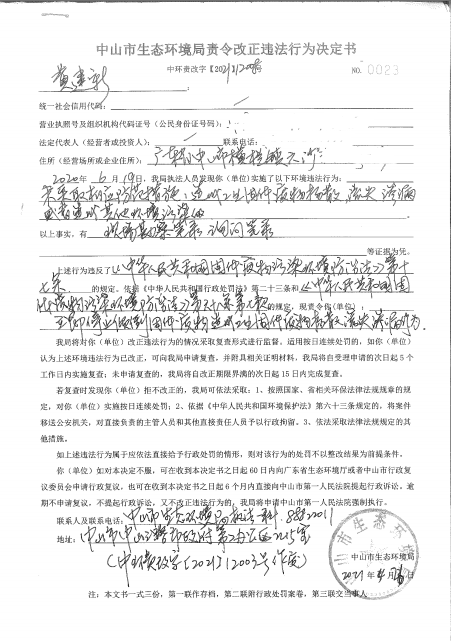 中山市生态环境局责令改正违法行为决定书
中环责改字【2021】1200号
NO. 0023
黄建新
统一社会信用代码：
营业执照号及组织机构代码证号（公民身份证号码）：
法定代表人（经营者或投资人）： 联系电话：
住所（经营场所或企业住所）：广东省中山市横栏镇六沙
2020年6月19日，我局执法人员发现你（单位）实施了以下环境违法行为：
未采取相应防范措施，造成工业固体废物扬散、流失、渗漏
或者造成其他环境污染的
以上事实，有 现场勘察笔录、询问笔录
等证据为凭。
上述行为违反了《中华人民共和国固体废物污染环境防治法》第十
七条 的规定。依据《中华人民共和国行政处罚法》第二十三条和《中华人民共和国固
体废物污染环境防治法》第六十八条第七款 的规定，现责令你（单位）：
立即停止
我局将对你（单位）改正违法行为的情况采取复查形式进行监督。适用按日连续处罚的，如你（单位）
认为上述环境违法行为已改正，可向我局申请复查，并附具相关证明材料，我局将自受理申请的次日起5个
工作日内实施复查；未申请复查的，我局将自改正期限界满的次日起15日内完成复查。
若复查时发现你（单位）拒不改正的，我局可依法采取：1、按照国家、省相关环保法律法规规章的规
定，对你（单位）实施按日连续处罚；2、依据《中华人民共和国环境保护法》第六十三条规定的，将案件
移送公安机关，对直接负责的主管人员和其他直接责任人员予以行政拘留。3、依法采取法律法规规定的其
他措施。
如上述违法行为属于应依法直接给予行政处罚的情形，则对该行为的处罚不以整改结果为前提条件。
你（单位）如对本决定不服，可在收到本决定书之日起60日内向广东省生态环境厅或者中山市行政复
议委员会申请行政复议，也可在收到本决定书之日起6个月内直接向中山市第一人民法院提起行政诉讼。逾
期不申请复议，不提起行政诉讼，又不改正违法行为的，我局将申请中山市第一人民法院强制执行。
联系人及联系电话：中山市生态环境局 科
地址：中山市中山三路 市政府第二办公区 室
（中环责改字〔2021〕1200 号作废）
中山市生态环境局
2021年4月
注：本文书一式三份，第一联作存档，第二联附行政处罚案卷，第三联交当事人